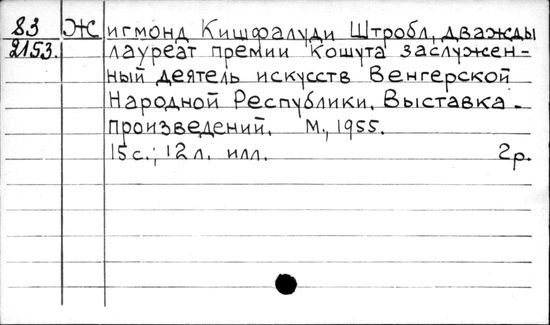 83 Жигмонд Кишфалуди Штробл, дважды
2153. лауреат премии Кошута заслужен-
ный деятель искусств Венгерской
Народной Республики. Выставка
произведений. М., 1955.
15 с.; 12 л. илл. 2р.